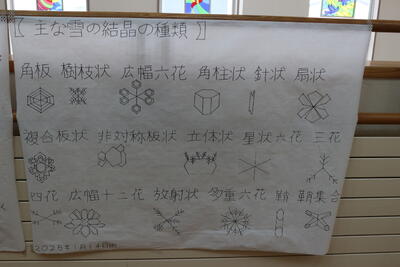 〖 主な雪の結晶の種類 〗
角板 樹枝状 広幅六花 角柱状 針状 扇状
複合板状 非対称板状 立体状 星状六花 三花
四花 広幅十二花 放射状 多重六花 鞘 鞘集合
2025年1月14日㈫